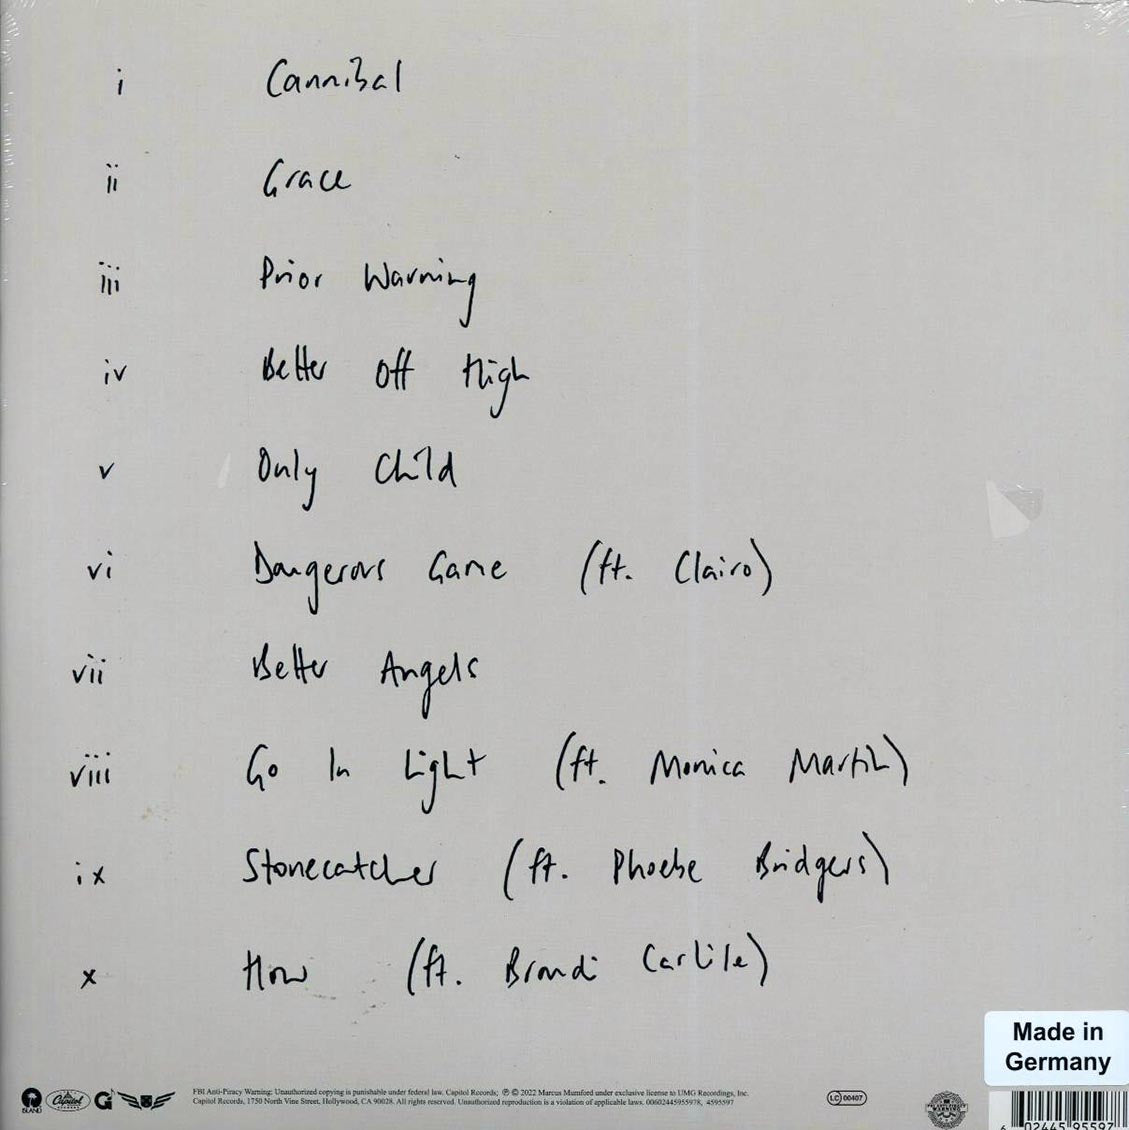 i Cannibal
ii Grace
iii Prior Warning
iv Better Off High
v Only Child
vi Dangerous Game (ft. Clairo)
vii Better Angels
viii Go In Light (ft. Monica Martin)
ix Stonecatcher (ft. Phoebe Bridgers)
x How (ft. Brandi Carlile)
Made in
Germany
ISLAND
Capitol
FBI Anti-Piracy Warning: Unauthorized copying is punishable under federal law. Capitol Records; ℗ © 2022 Marcus Mumford under exclusive license to UMG Recordings, Inc.
Capitol Records, 1750 North Vine Street, Hollywood, CA 90028. All rights reserved. Unauthorized reproduction is a violation of applicable laws. 00602445955978, 4595597
LC 00407
6 02445 95597